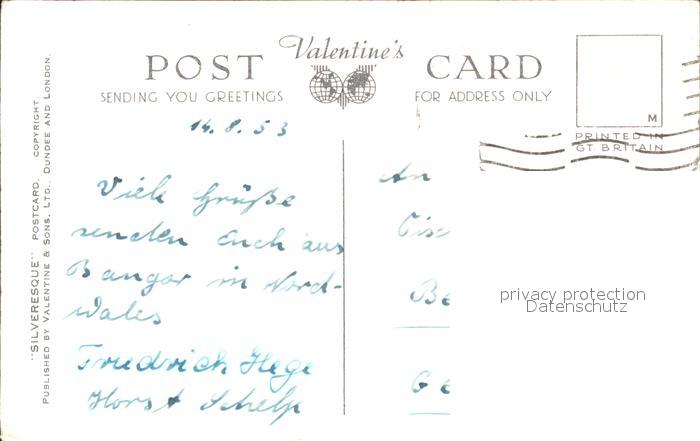 Valentine's
POST CARD
SENDING YOU GREETINGS FOR ADDRESS ONLY
M
PRINTED IN
GT. BRITAIN
"SILVERESQUE" POSTCARD. COPYRIGHT.
PUBLISHED BY VALENTINE & SONS, LTD., DUNDEE AND LONDON.
14.8.53
Viele Grüße
senden Euch aus
Bangor in Nord-
Wales
Friedrich Hege
Horst Schelp
An
Be
Ge
privacy protection
Datenschutz